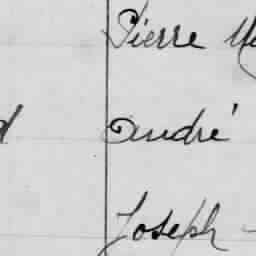 Pierre
André
Joseph